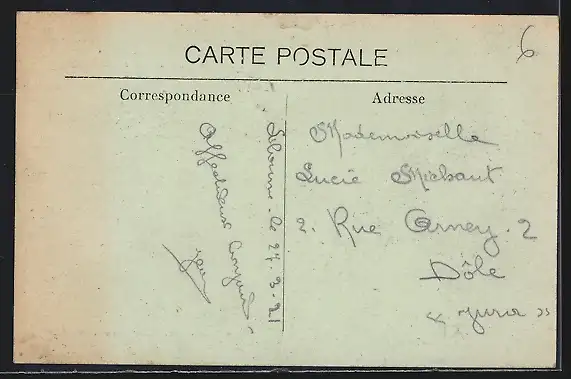 6
CARTE POSTALE
Correspondance
Adresse
le 27-3-21
Affectueux
Mademoiselle
Lucie Michaut
2. Rue Arney. 2
Dôle
« Jura »